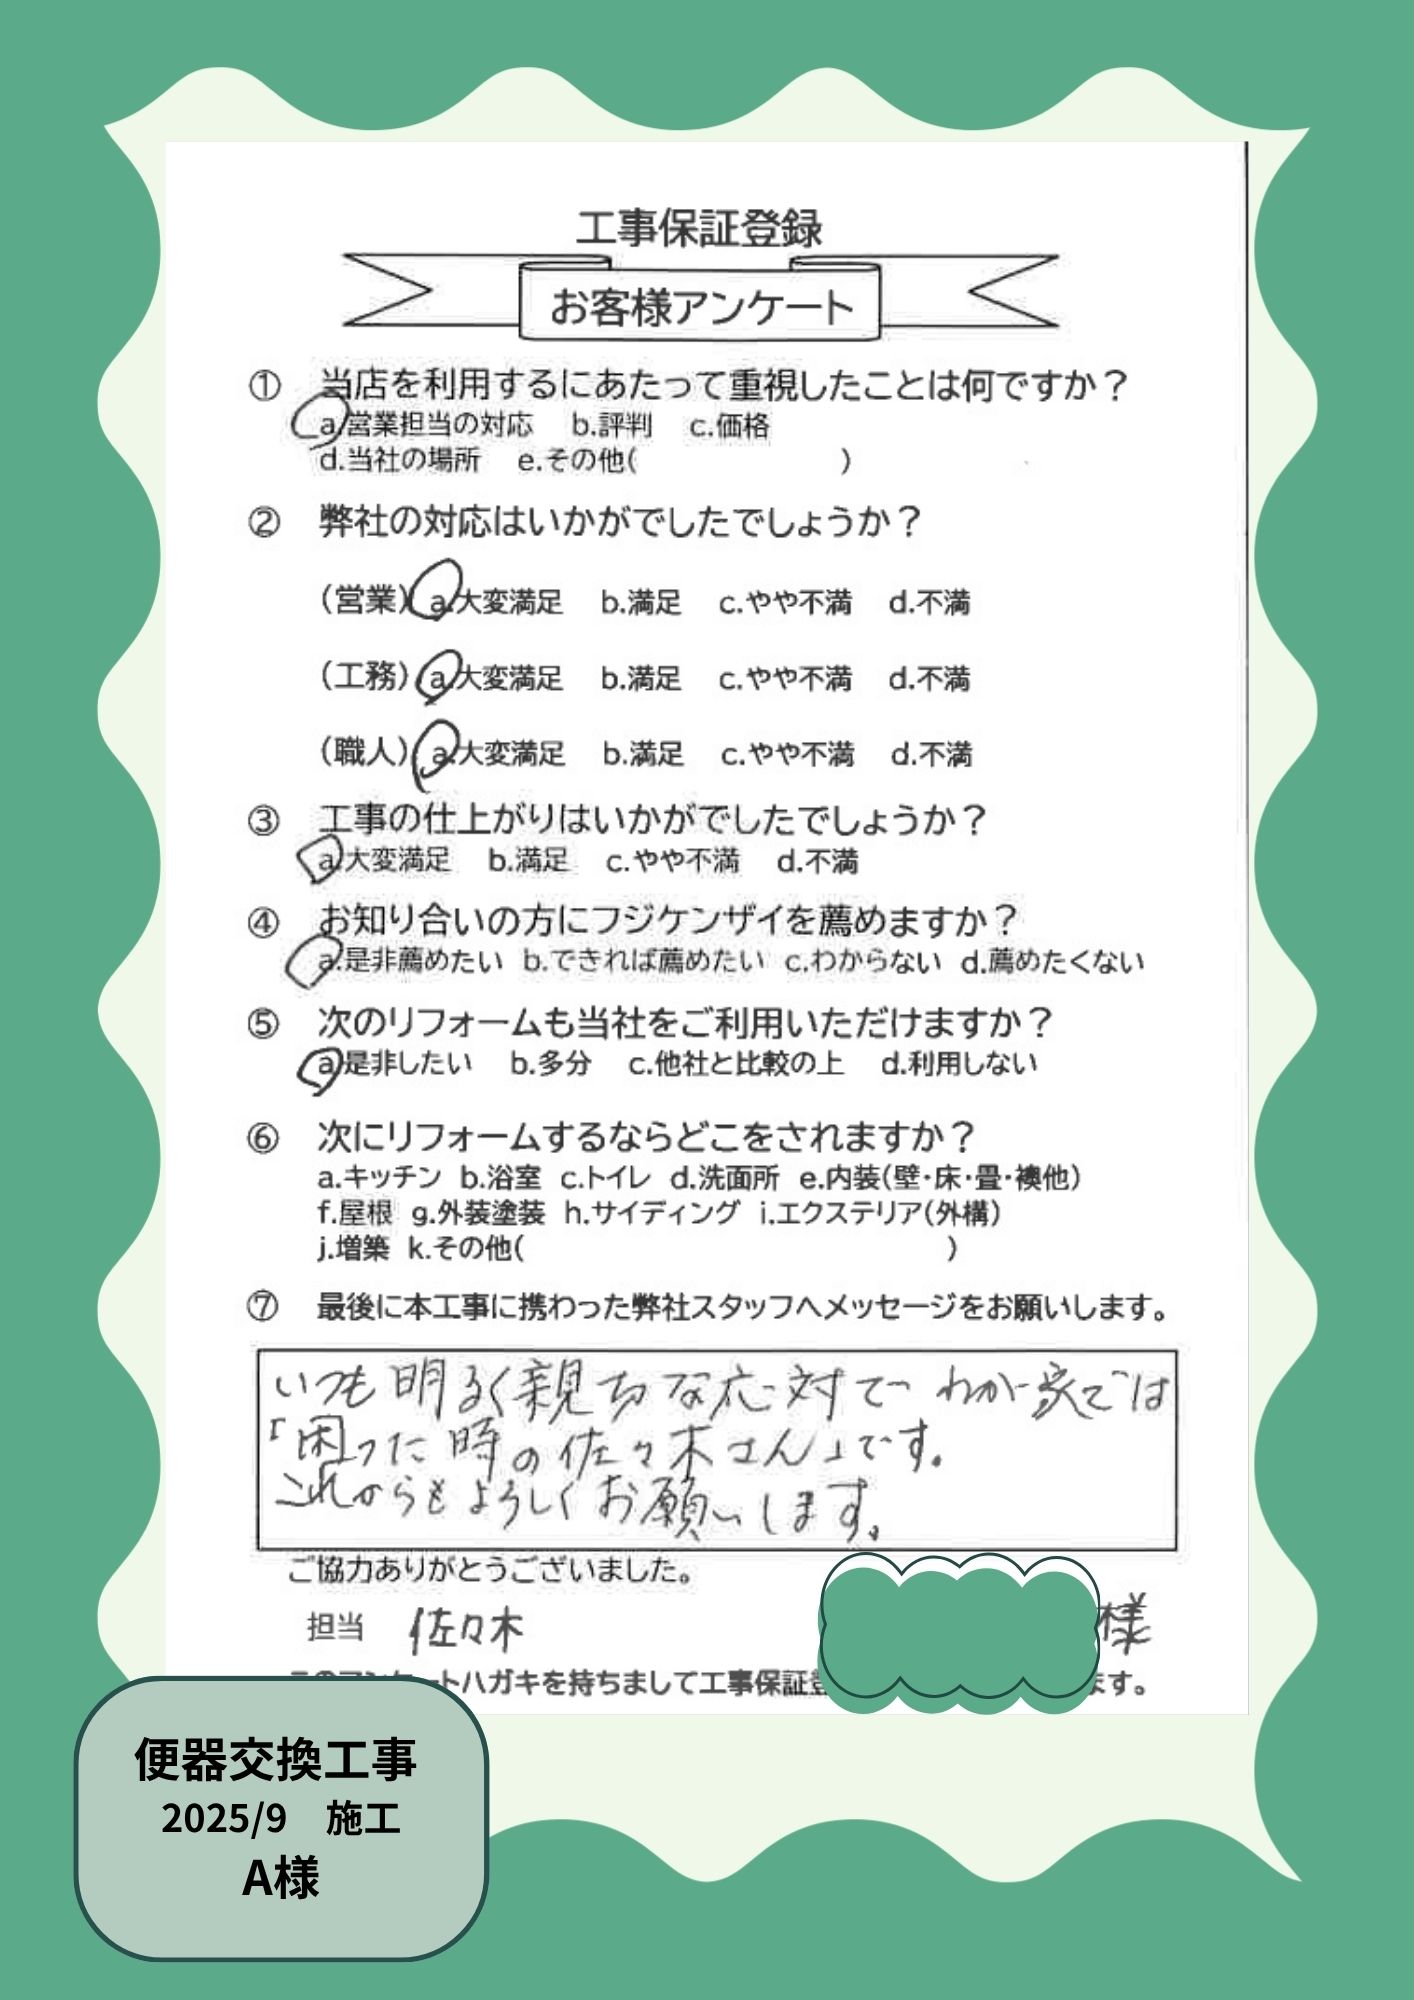 工事保証登録
お客様アンケート
① 当店を利用するにあたって重視したことは何ですか？
a.営業担当の対応 b.評判 c.価格
d.当社の場所 e.その他( )
② 弊社の対応はいかがでしたでしょうか？
(営業) a.大変満足 b.満足 c.やや不満 d.不満
(工務) a.大変満足 b.満足 c.やや不満 d.不満
(職人) a.大変満足 b.満足 c.やや不満 d.不満
③ 工事の仕上がりはいかがでしたでしょうか？
a.大変満足 b.満足 c.やや不満 d.不満
④ お知り合いの方にフジケンザイを薦めますか？
a.是非薦めたい b.できれば薦めたい c.わからない d.薦めたくない
⑤ 次のリフォームも当社をご利用いただけますか？
a.是非したい b.多分 c.他社と比較の上 d.利用しない
⑥ 次にリフォームするならどこをされますか？
a.キッチン b.浴室 c.トイレ d.洗面所 e.内装(壁・床・畳・襖他)
f.屋根 g.外装塗装 h.サイディング i.エクステリア(外構)
j.増築 k.その他( )
⑦ 最後に本工事に携わった弊社スタッフへメッセージをお願いします。
いつも明るく親切な応対で わが家では
「困った時の佐々木さん」です。
これからもよろしくお願いします。
ご協力ありがとうございました。
担当 佐々木 様
トハガキを持ちまして工事保証登 ます。
便器交換工事
2025/9 施工
A様